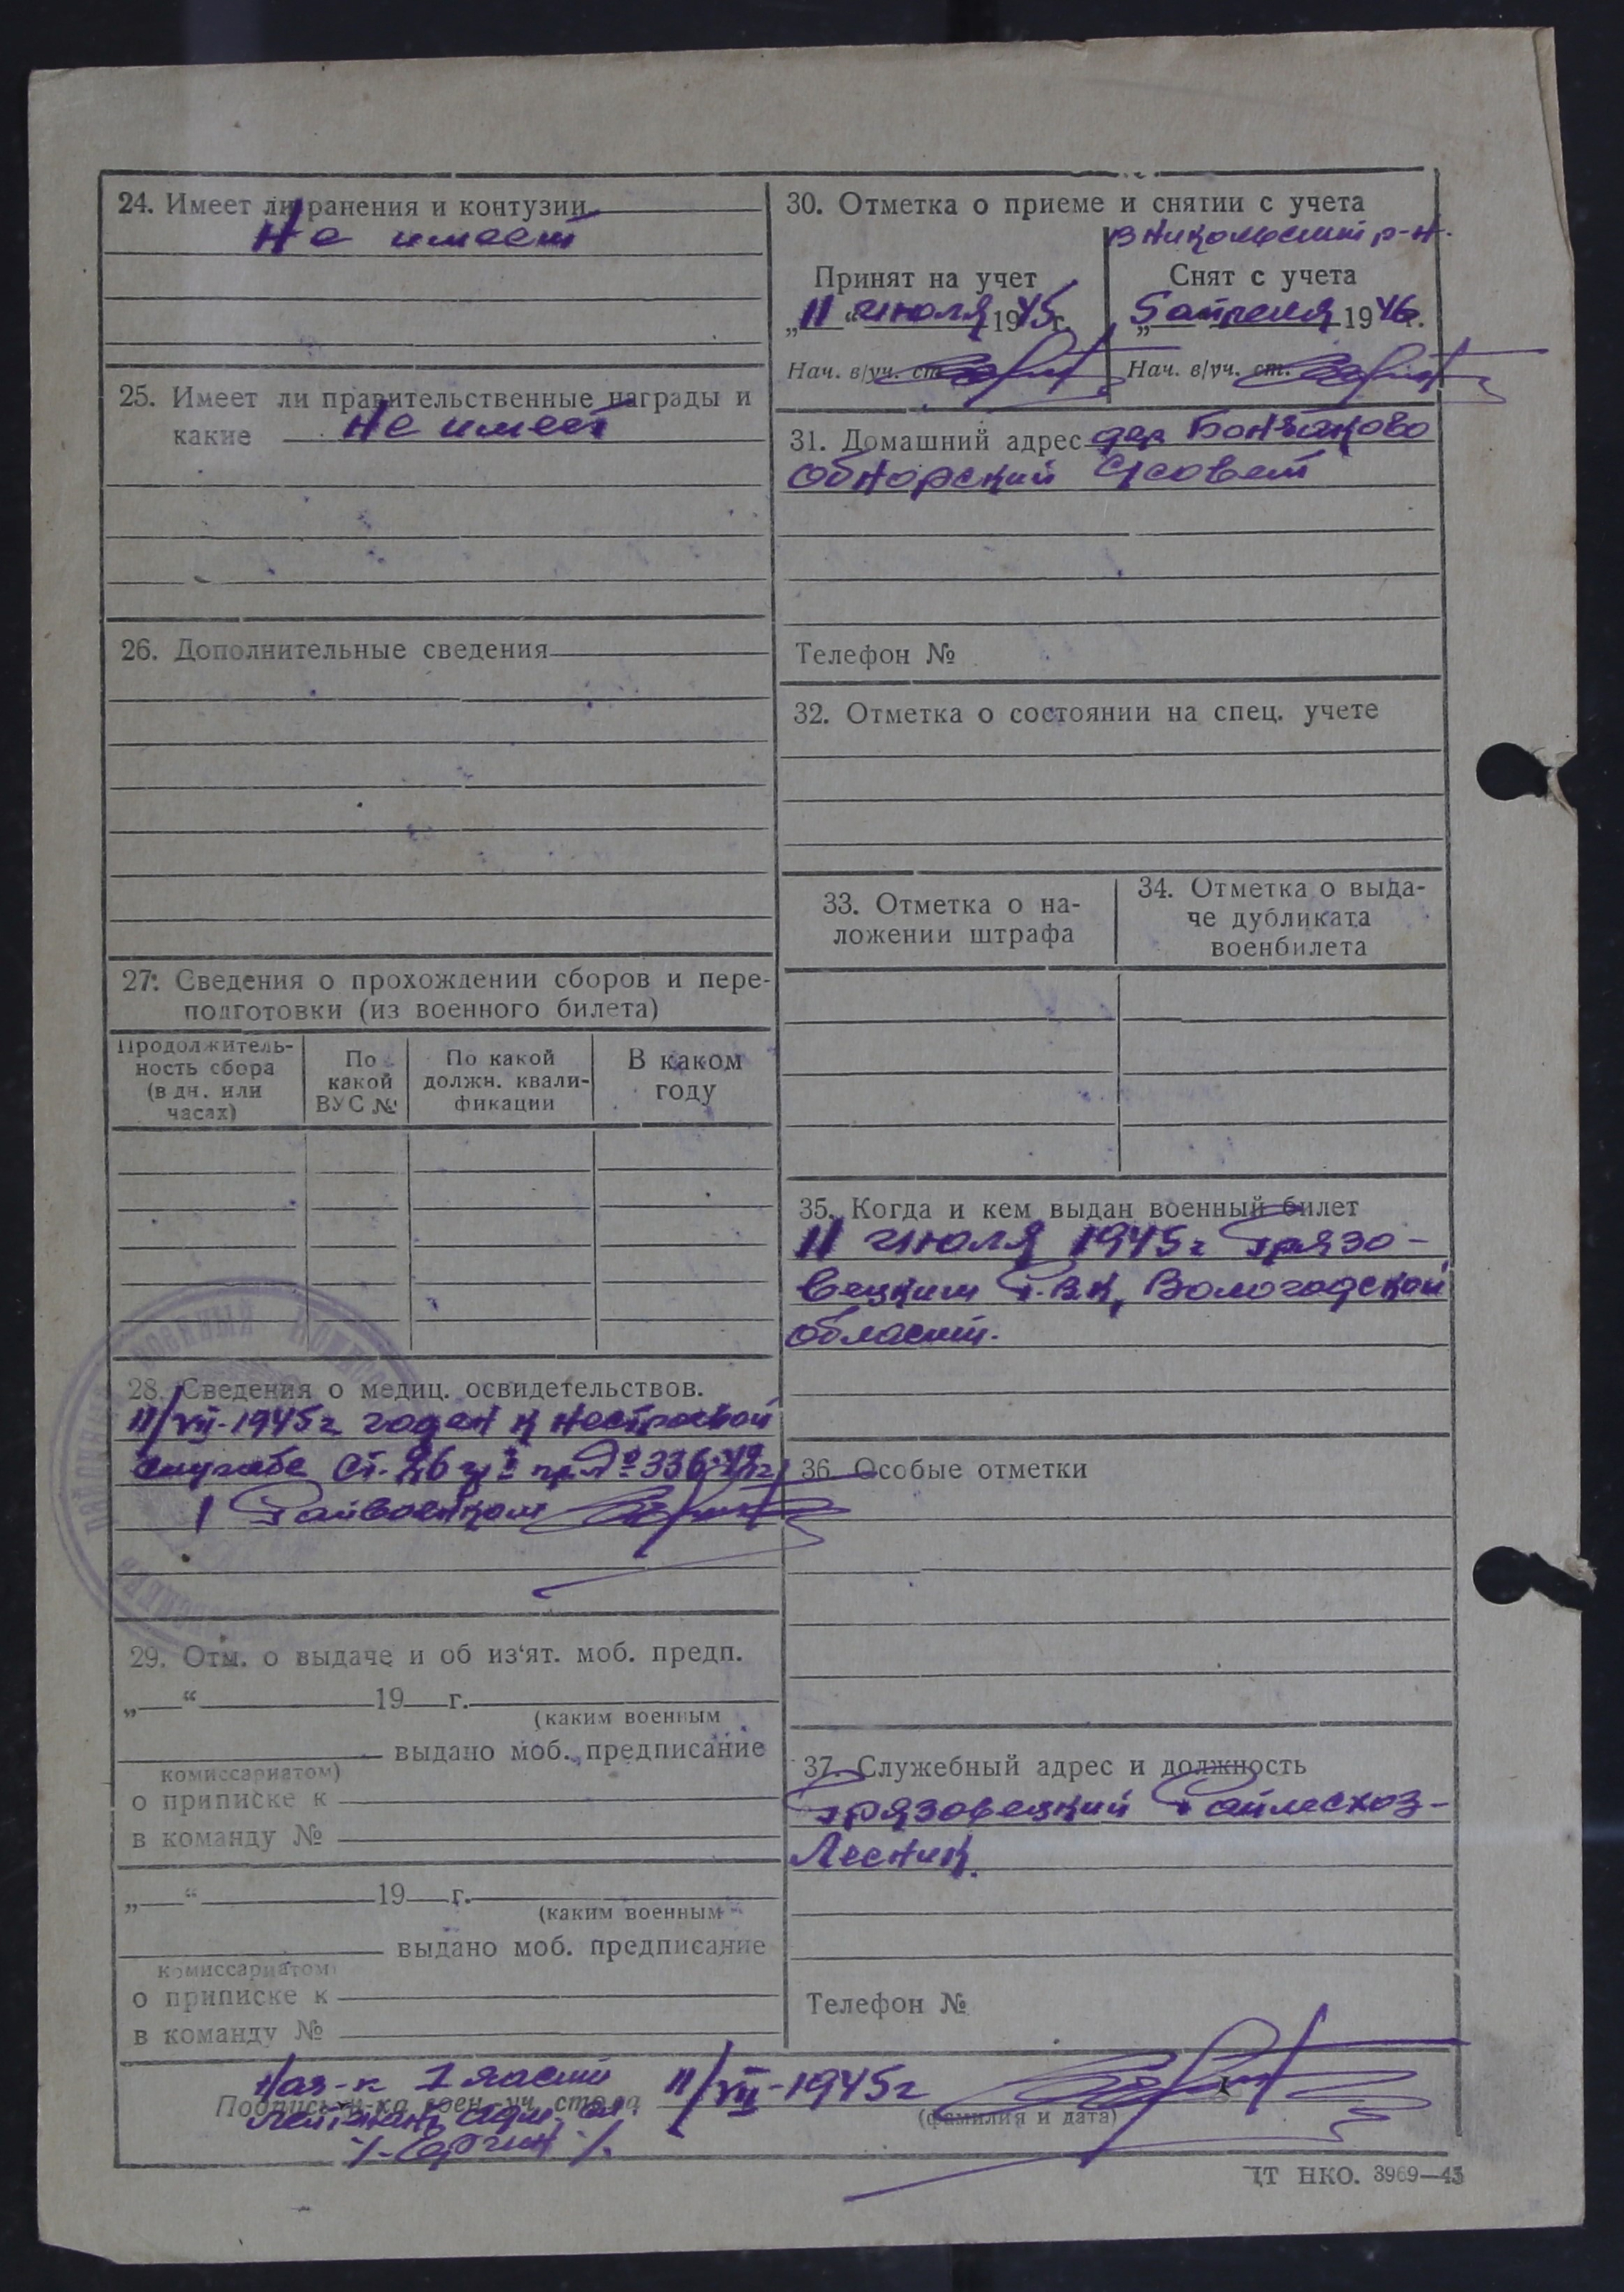 24. Имеет ли ранения и контузии
Не имеет
25. Имеет ли правительственные награды и
какие Не имеет
26. Дополнительные сведения
27. Сведения о прохождении сборов и пере-
подготовки (из военного билета)
Продолжитель-
ность сбора
(в дн. или
часах)
По
какой
ВУС №
По какой
должн. квали-
фикации
В каком
году
28. Сведения о медиц. освидетельствов.
11/VII-1945г годен к нестроевой
службе ст. 336-42г
Райвоенком
29. Отм. о выдаче и об из'ят. моб. предп.
„ “ 19 г.
(каким военным
выдано моб. предписание
комиссариатом)
о приписке к
в команду №
„ “ 19 г.
(каким военным
выдано моб. предписание
комиссариатом)
о приписке к
в команду №
30. Отметка о приеме и снятии с учета
в Никольский р-н.
Принят на учет
„11“ июля 1945г.
Нач. в/уч. ст.
Снят с учета
„5 апреля 1946г.
Нач. в/уч. ст.
31. Домашний адрес дер
Обнорский С/совет
Телефон №
32. Отметка о состоянии на спец. учете
33. Отметка о на-
ложении штрафа
34. Отметка о выда-
че дубликата
военбилета
35. Когда и кем выдан военный билет
11 июля 1945г Грязо-
вецким Р.В.К, Вологодской
области.
36. Особые отметки
37. Служебный адрес и должность
Грязовецкий Райлесхоз-
Лесник.
Телефон №
Нач-к 1 части
Подпись н-ка воен. уч. стола 11/VII-1945г
лейтенант адм. сл.
(фамилия и дата)
ЦТ НКО. 3969—43